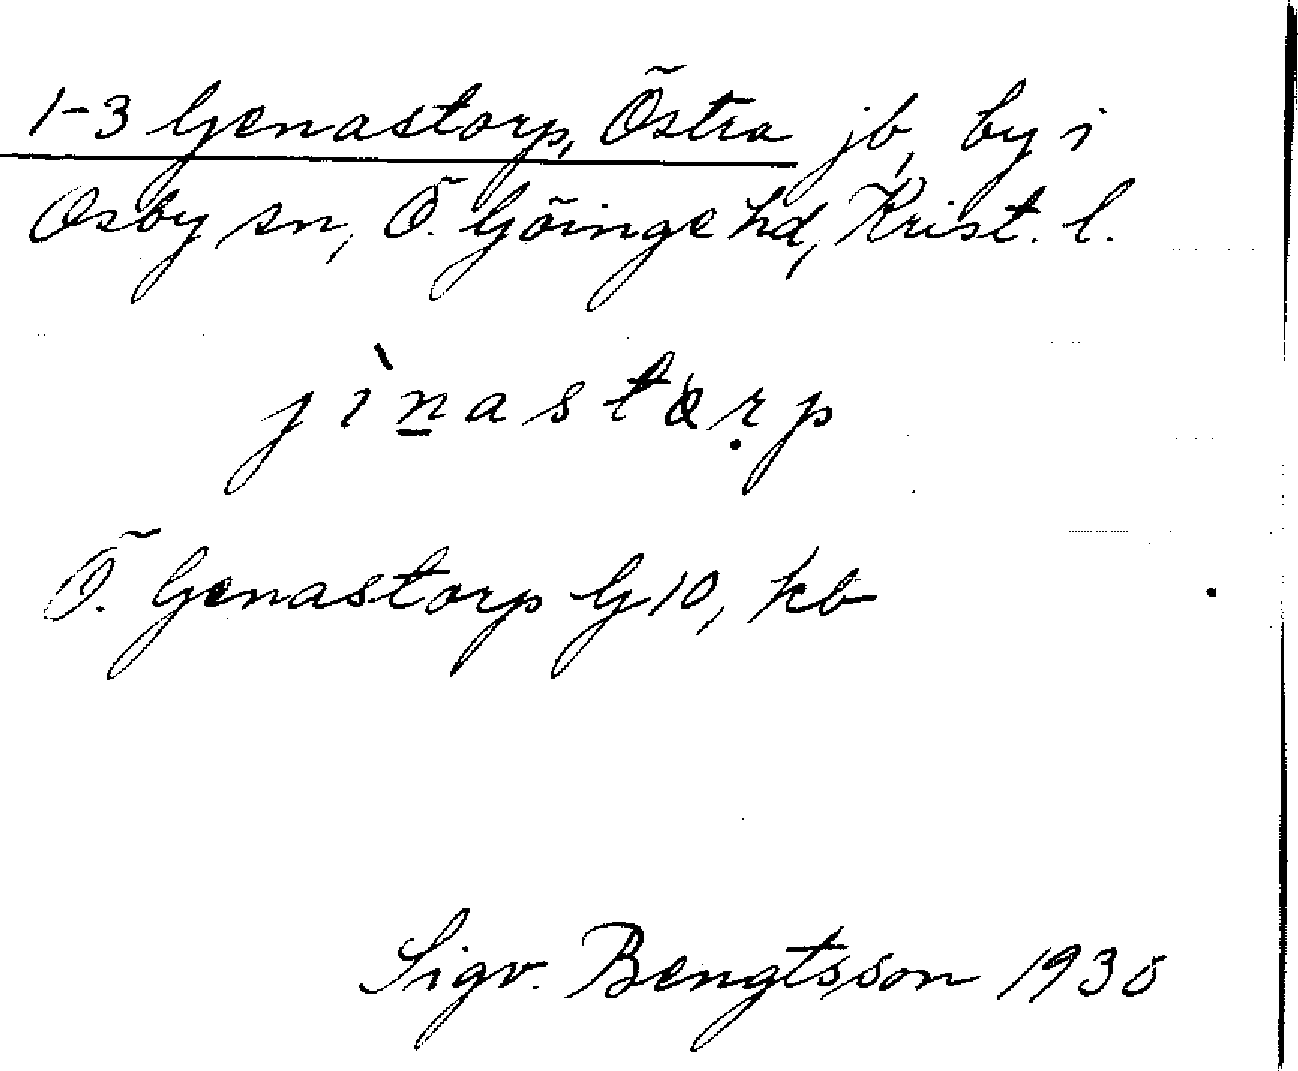 1-3 Genastorp, Östra jb, by i
Osby sn, Ö. Göinge hd, Krist. l.
jìn̲astærp
Ö. Genastorp G 10, kb
Sigv. Bengtsson 1935